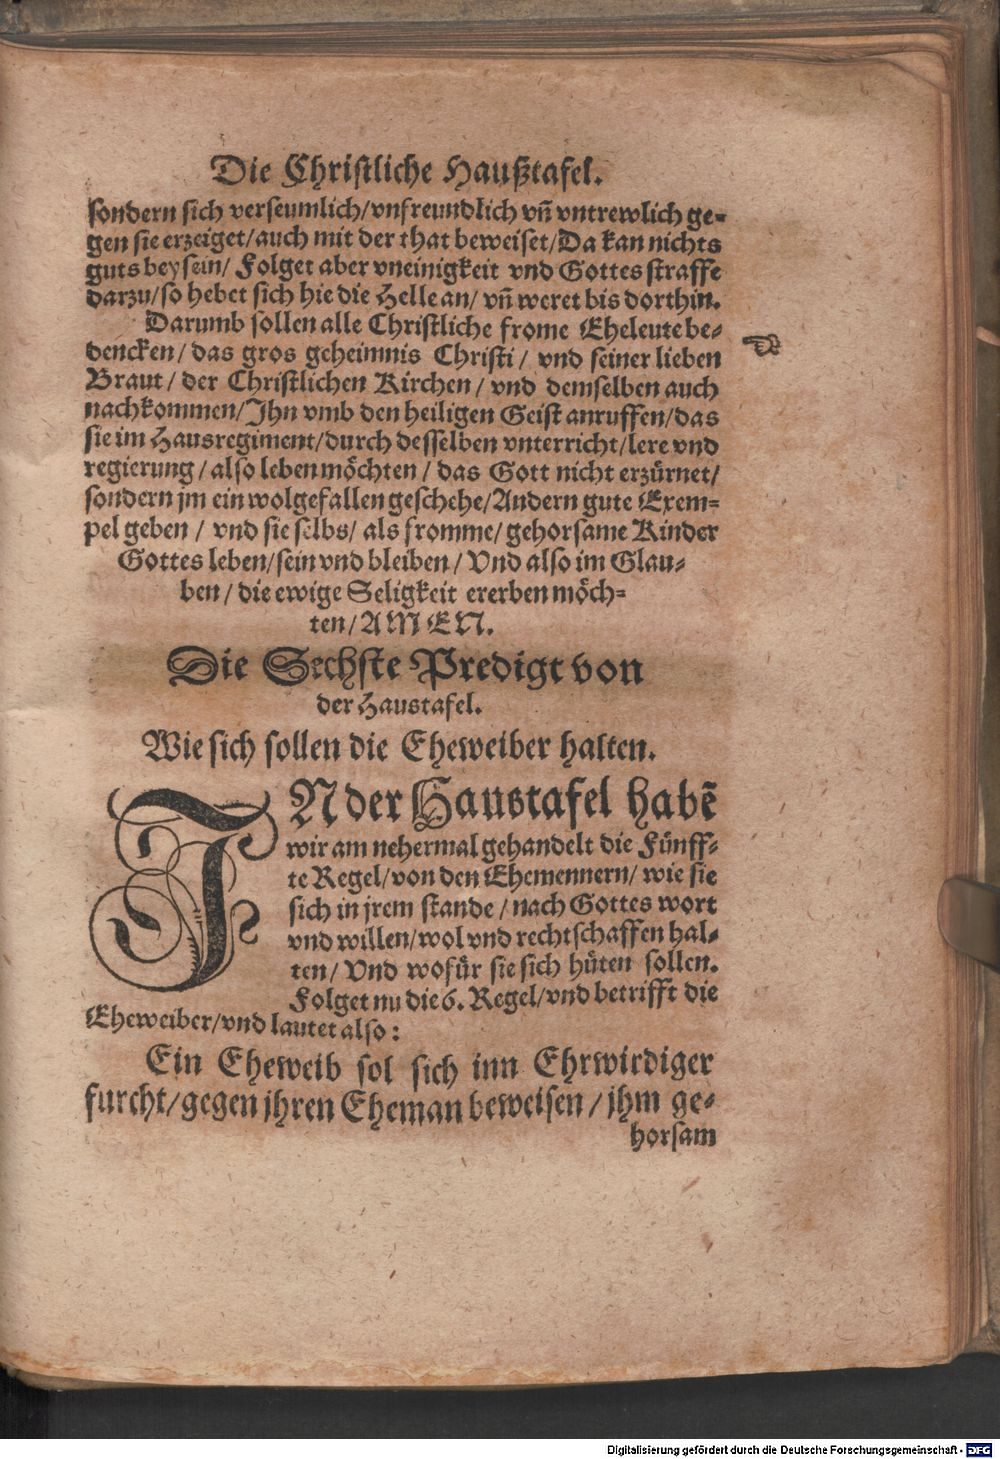 Die Christliche Haußtafel.
sondern sich verseumlich/vnfreundlich vñ vntrewlich ge-
gen sie erzeiget/auch mit der that beweiset/Da kan nichts
guts bey sein/ Folget aber vneinigkeit vnd Gottes straffe
darzu/so hebet sich hie die Helle an/ vñ weret bis dorthin.
Darumb sollen alle Christliche frome Eheleute be-
dencken/ das gros geheimnis Christi/ vnd seiner lieben
☜
Braut/ der Christlichen Kirchen/ vnd demselben auch
nachkommen/Ihn vmb den heiligen Geist anruffen/das
sie im Hausregiment/durch desselben vnterricht/lere vnd
regierung/also leben möchten/ das Gott nicht erzürnet/
sondern jm ein wolgefallen geschehe/Andern gute Exem-
pel geben/ vnd sie selbs/ als fromme/ gehorsame Kinder
Gottes leben/sein vnd bleiben/ Vnd also im Glau-
ben/ die ewige Seligkeit ererben möch-
ten/ AMEN.
Die Sechste Predigt von
der Haustafel.
Wie sich sollen die Eheweiber halten.
IN der Haustafel habē
wir am nehermal gehandelt die Fünff-
te Regel/von den Ehemennern/ wie sie
sich in jrem stande/ nach Gottes wort
vnd willen/wol vnd rechtschaffen hal-
ten/ Vnd wofür sie sich hüten sollen.
Folget nu die 6. Regel/vnd betrifft die
Eheweiber/vnd lautet also:
Ein Eheweib sol sich inn Ehrwirdiger
furcht/gegen jhren Eheman beweisen/ jhm ge-
horsam
Digitalisierung gefördert durch die Deutsche Forschungsgemeinschaft - DFG